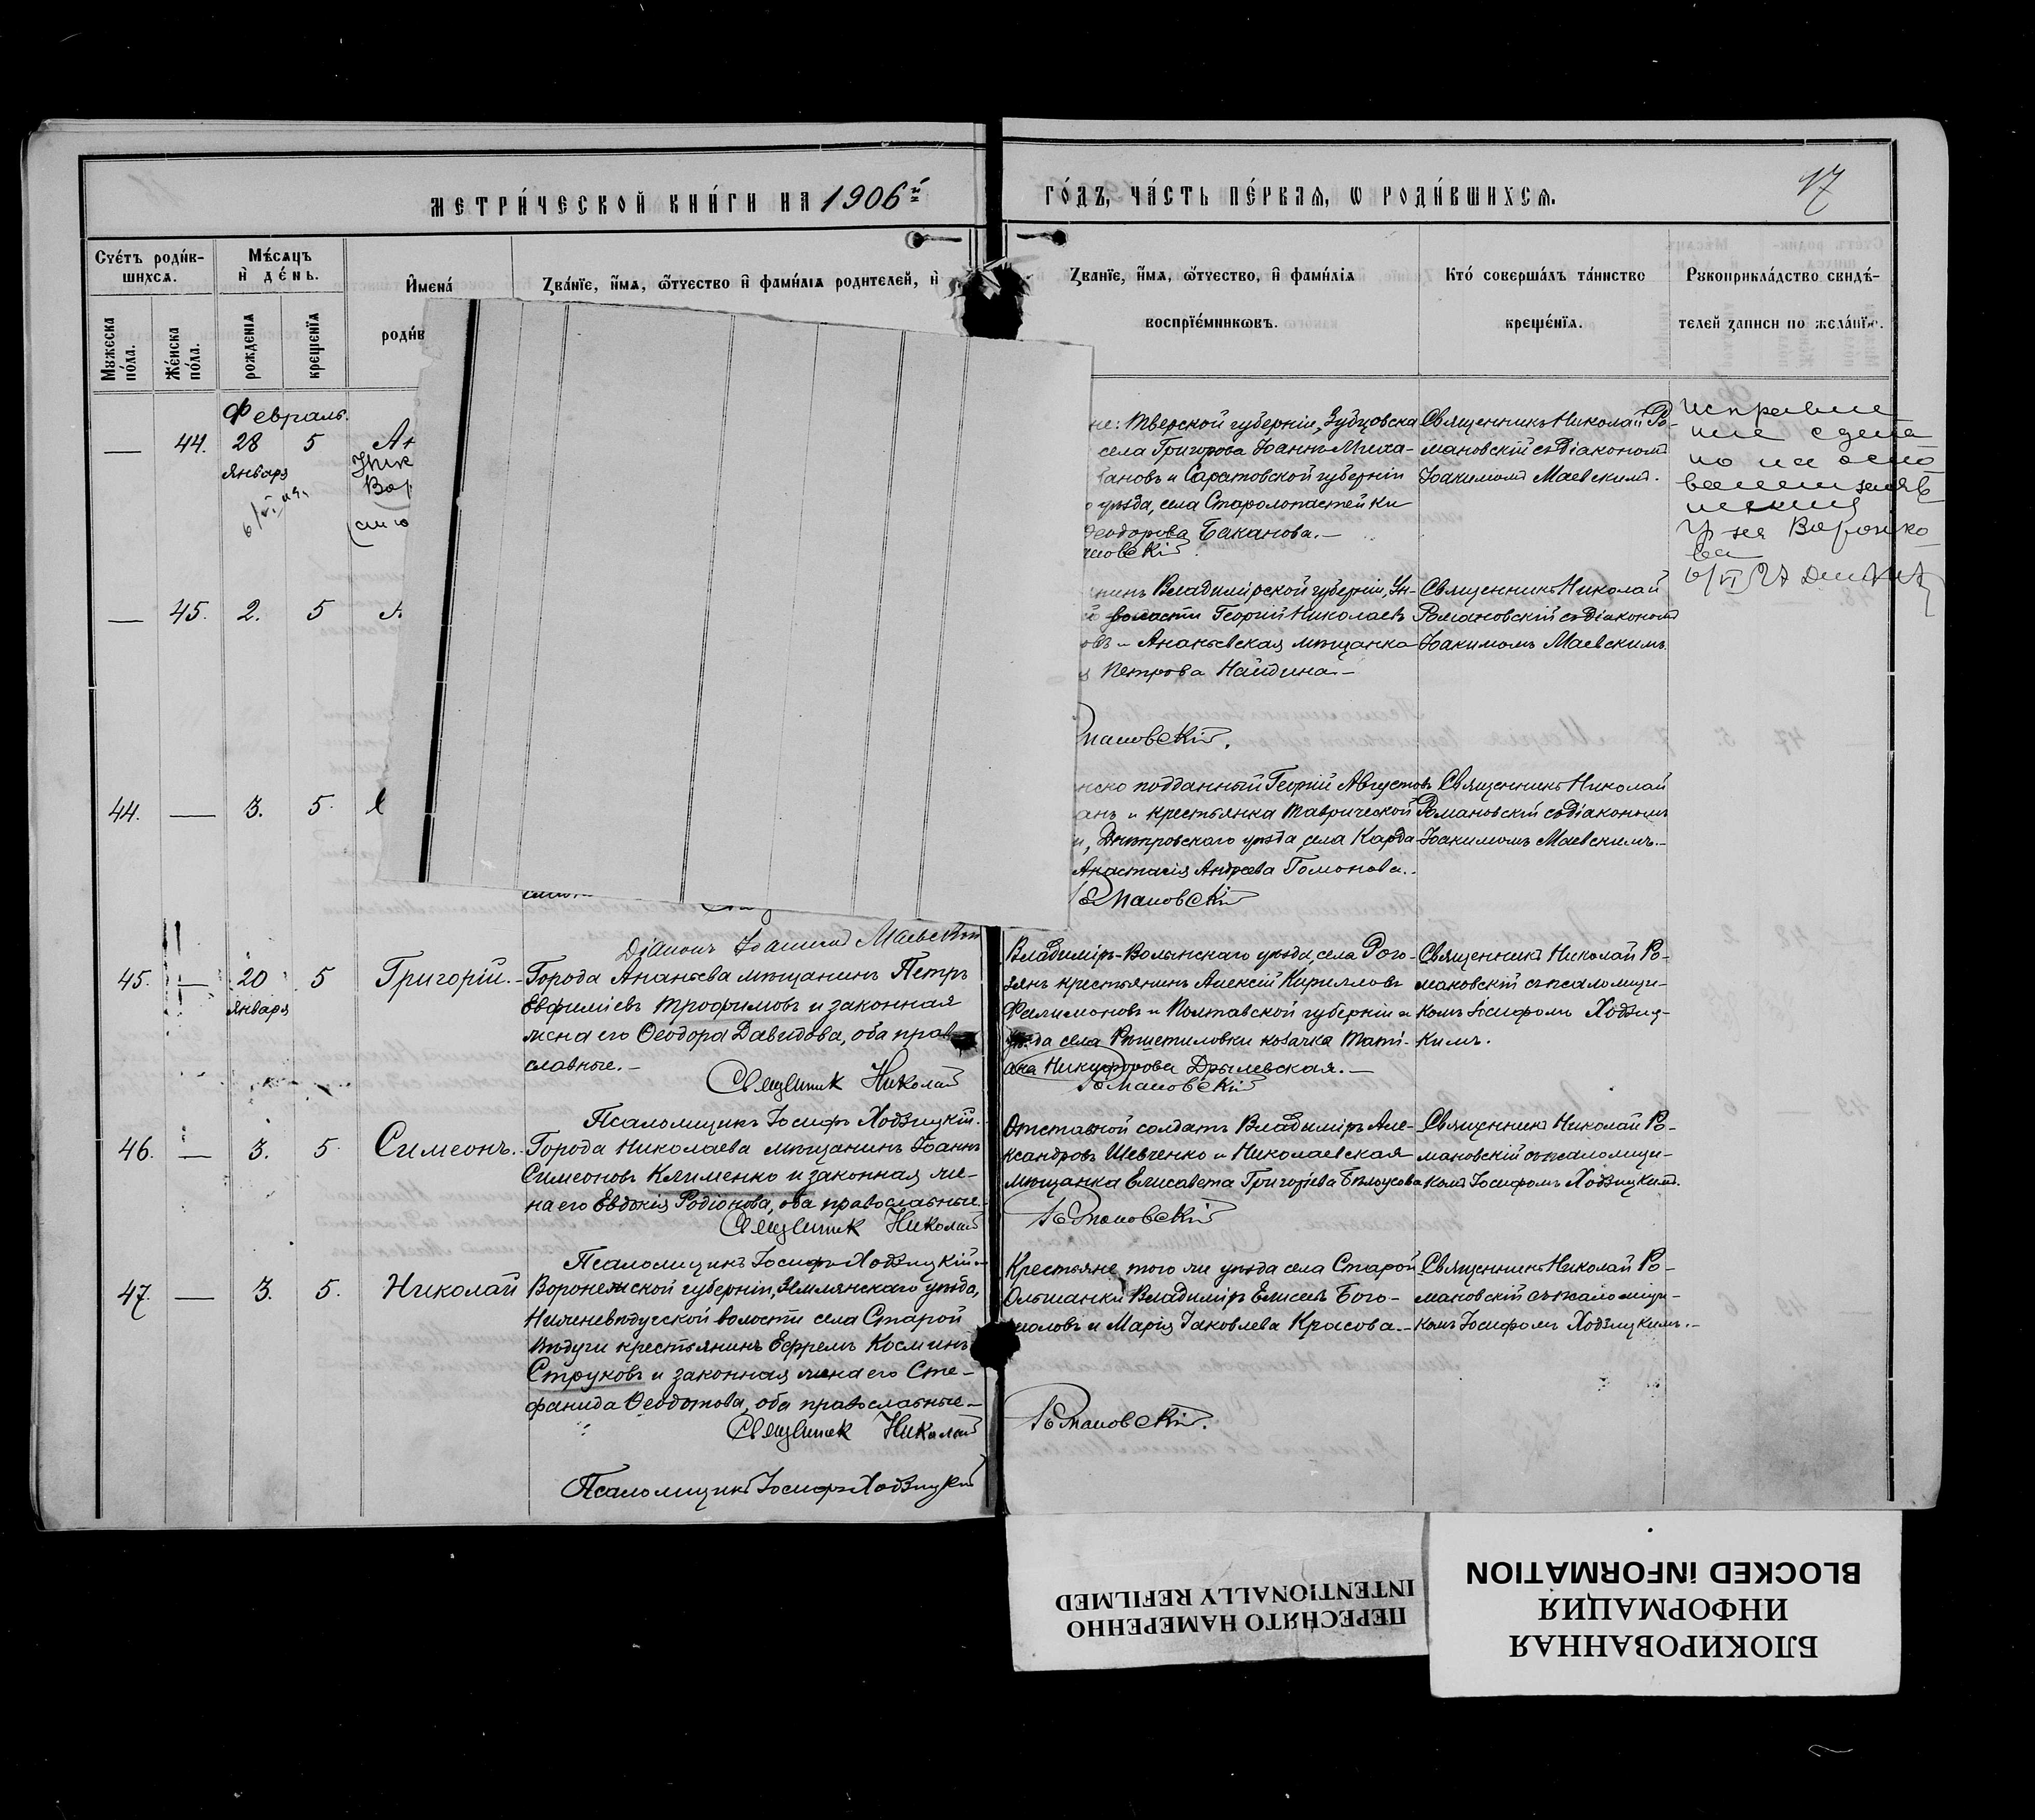 МЕТРИ́ЧЕСКОЙ КНИ́ГИ НА 1906й ГО́ДЪ, ЧА́СТЬ ПЕ́РВАѦ, Ѡ РОДИ́ВШИХСѦ.
17
Счéтъ роди́в-
шихсѧ.
Мѣ́сѧцъ
и҆ де́нь.
И҆мена́
родив
Зва́нїе, и҆́мѧ, ѻ҆́тчество и҆ фами́лїѧ родителей, и҆
Зва́нїе, и҆́мѧ, ѻ҆́тчество, и҆ фами́лїѧ
воспрїе́мникѡвъ.
Кто́ соверша́лъ та́инство
креще́нїѧ.
Рꙋкоприкла́дство свидѣ́-
телей записи по жела́нїю.
Мꙋжеска
по́ла.
Же́нска
по́ла.
рожденїѧ
крещенїѧ
Февраль.
— 44. 28 5
Января
не: Тверской губерніи, Зубцовска
села Григорова Іоаннъ Миха-
ановъ и Саратовской губерніи
уѣзда, села Старолопастейки
Ѳеодорова Баканова.—
Священникъ Николай Ро-
мановскій съ Діакономъ
Іоакимомъ Маевскимъ.
Исправле
ние сдела
но на осно
вании заяв
ления
Воронко
ва
— 45. 2. 5
нинъ Владимірской губерніи,
волости Георгій Николаевъ
овъ и Ананьевская мѣщанка
Петрова Найдина.—
мановскій.
Священникъ Николай
Романовскій съ Діакономъ
Іоакимомъ Маевскимъ.
44. — 3. 5.
нско подданный Георгій Августовъ
анъ и крестьянка Таврической
и, Днѣпровскаго уѣзда, села Карда-
Анастасія Андреева Гомонова.
Романовскій
Священникъ Николай
Романовскій съ Діакономъ
Іоакимомъ Маевскимъ.—
Діаконъ Іоакимъ Маевскій
45. — 20 5 Григорій.
Января
Города Ананьева мѣщанинъ Петръ
Евфиміевъ Трофимовъ и законная
жена его Ѳеодора Давидова, оба право
славные.—
Священникъ Николай
Владиміръ-Волынскаго уѣзда, села Рого-
зянъ крестьянинъ Алексій Кирилловъ
Филимоновъ и Полтавской губерніи и
уѣзда села Рѣшетиловки козачка Таті-
ана Никифорова Дрылевская.—
Романовскій
Священникъ Николай Ро-
мановскій съ псаломщи-
комъ Іосифомъ Ходзиц-
кимъ.
Псаломщикъ Іосифъ Ходзицкій.
46. — 3. 5. Симеонъ.
Города Николаева мѣщанинъ Іоаннъ
Симеоновъ Клименко и законная же-
на его Евдокія Родіонова, оба православные.
Священникъ Николай
Отставной солдатъ Владиміръ Але-
ксандровъ Шевченко и Николаевская
мѣщанка Елисавета Григоріева Бѣлоусова
Романовскій
Священникъ Николай Ро-
мановскій съ псаломщи-
комъ Іосифомъ Ходзицкимъ.
Псаломщикъ Іосифъ Ходзицкій.
47. — 3. 5. Николай
Воронежской губерніи, Землянскаго уѣзда,
Нижневѣдугской волости села Старой
Вѣдуги крестьянинъ Ефремъ Косминъ
Струковъ и законная жена его Сте-
фанида Ѳеодотова, оба православные—
Священникъ Николай
Крестьяне того же уѣзда села Старой
Ольшанки Владиміръ Елисеевъ Бого-
моловъ и Марія Іаковлева Красова.—
Романовскій.
Священникъ Николай Ро-
мановскій съ псаломщи-
комъ Іосифомъ Ходзицкимъ.—
Псаломщикъ Іосифъ Ходзицкій
ПЕРЕСНЯТО НАМЕРЕННО
INTENTIONALLY REFILMED
БЛОКИРОВАННАЯ
ИНФОРМАЦИЯ
BLOCKED INFORMATION